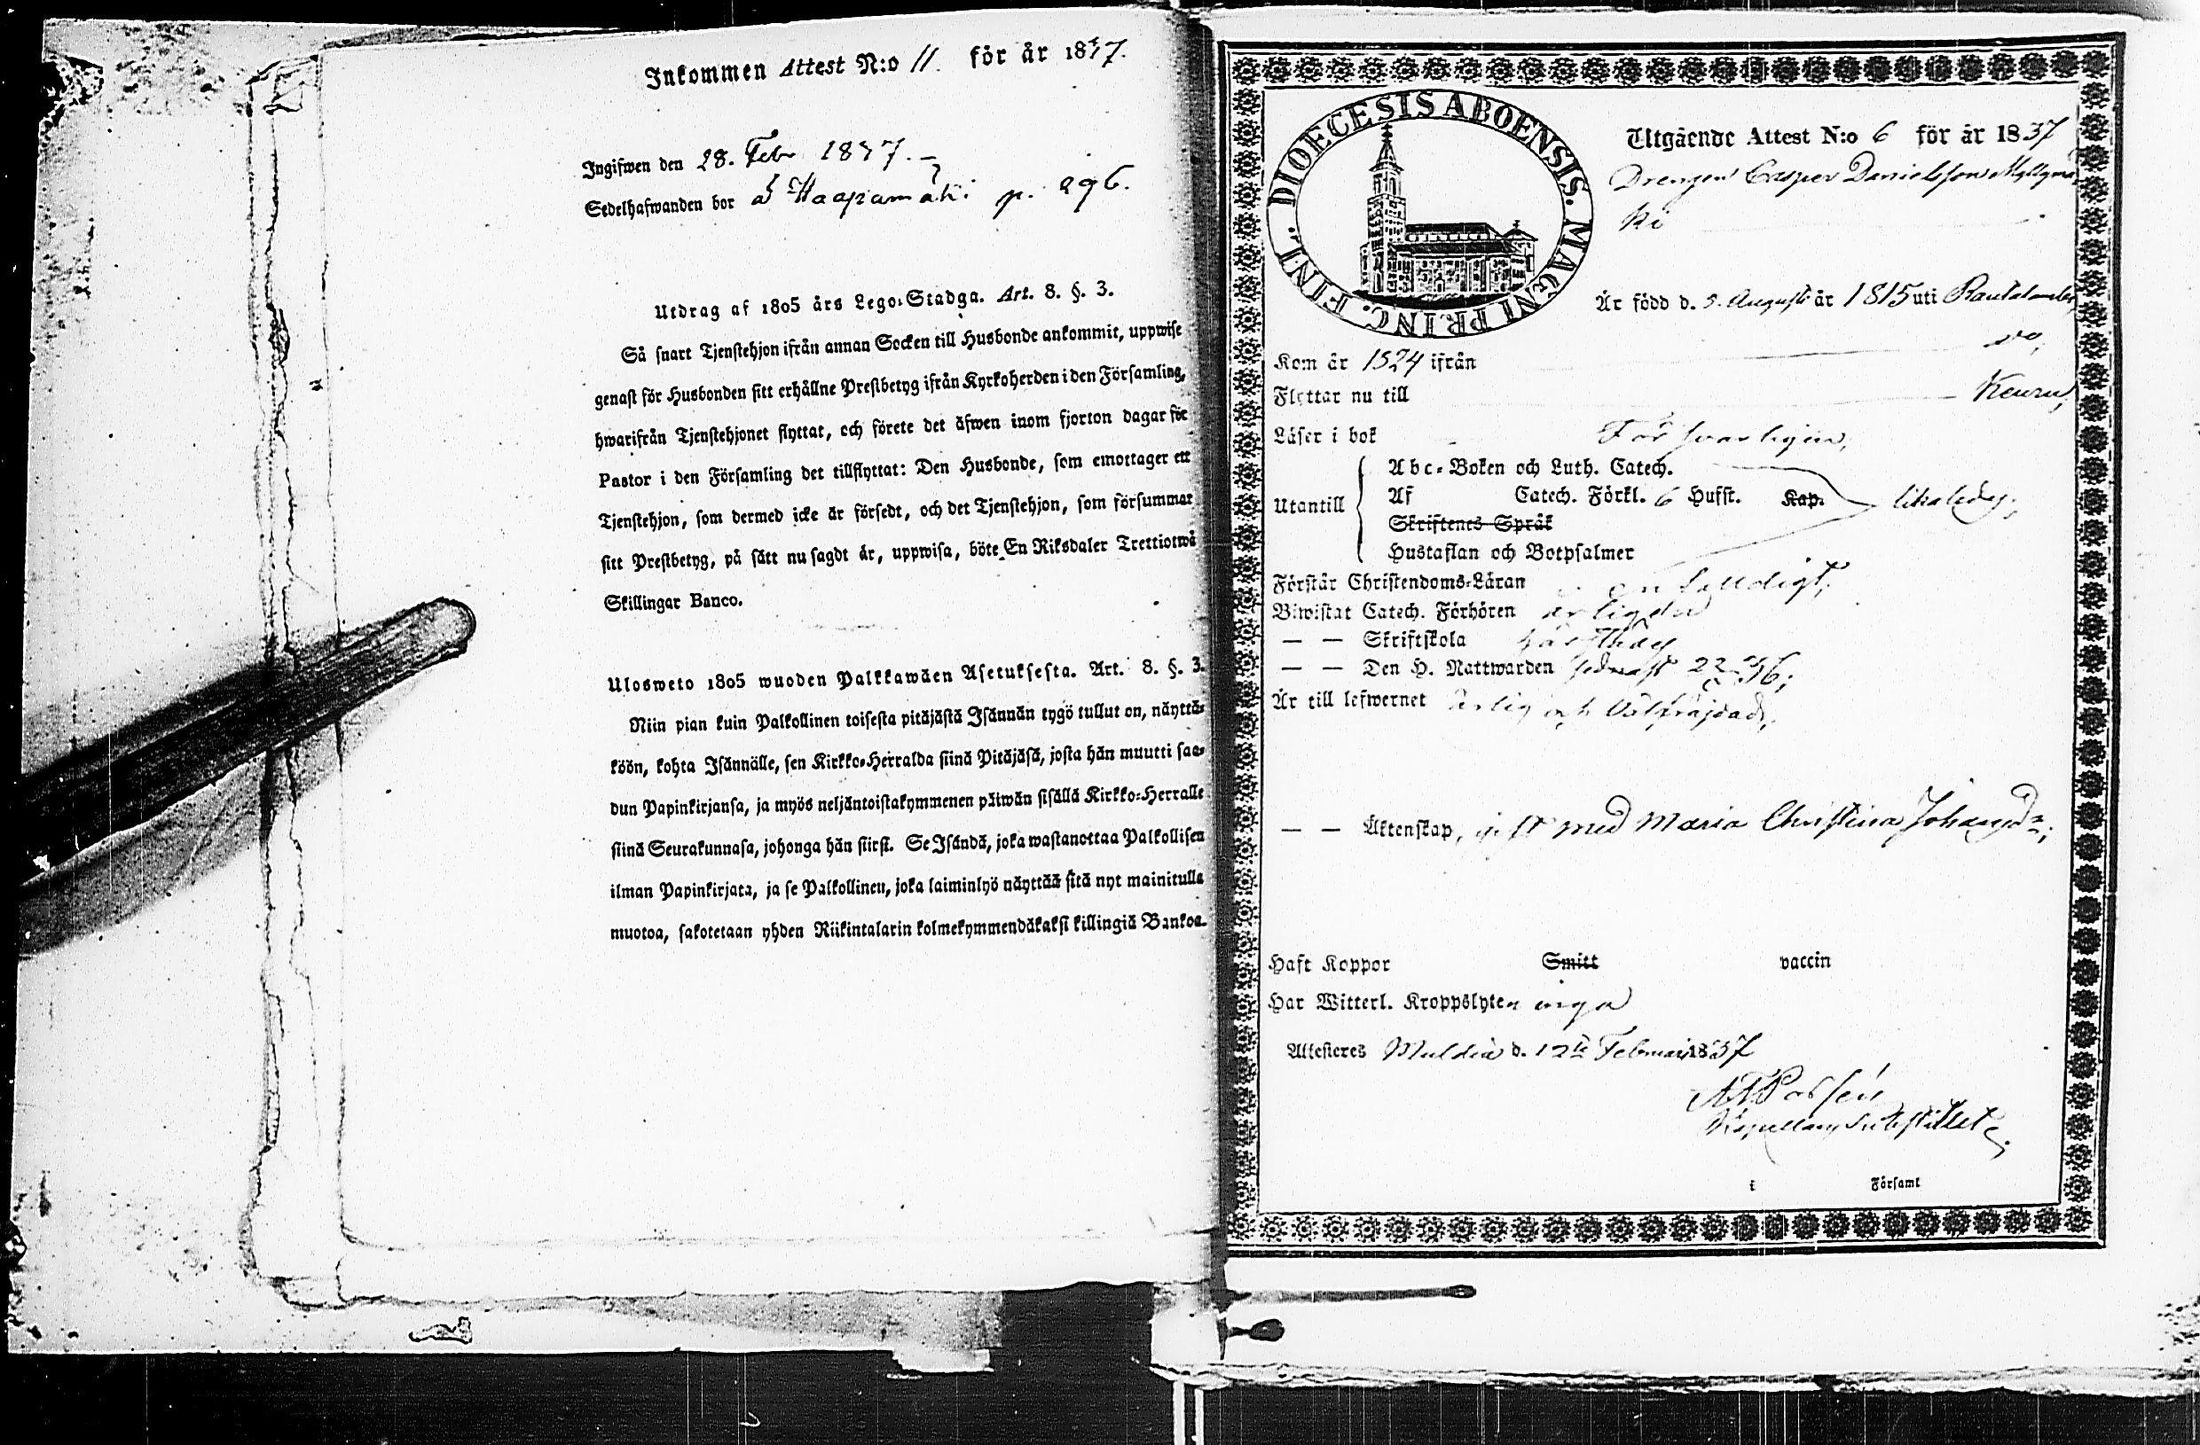 Inkommen Attest N:o 11. för år 1837.
Ingifwen den 28. Febr 1837.
Sedelhafwanden bor å Haapamäki p. 296.
Utdrag af 1805 års Lego-Stadga. Art. 8. §. 3.
Så snart Tjenstehjon ifrån annan Socken till Husbonde ankommit, uppwise
genast för Husbonden sitt erhållne Prestbetyg ifrån Kyrkoherden i den Församling,
hwarifrån Tjenstehjonet flyttat, och förete det äfwen inom fjorton dagar för
Pastor i den Församling det tillflyttat: Den Husbonde, som emottager ett
Tjenstehjon, som dermed icke är försedt, och det Tjenstehjon, som försummar
sitt Prestbetyg, på sätt nu sagdt är, uppwisa, böte En Riksdaler Trettiotwå
Skillingar Banco.
Ulosweto 1805 wuoden Palkkawäen Asetuksesta. Art. 8. §. 3.
Niin pian kuin Palkollinen toisesta pitäjästä Isännän tygö tullut on, näyttä-
köön, kohta Isännälle, sen Kirkko-Herralda siinä Pitäjäsä, josta hän muutti saa-
dun Papinkirjansa, ja myös neljäntoistakymmenen päiwän sisällä Kirkko-Herralle
siinä Seurakunnasa, johonga hän siirst. Se Isändä, joka wastanottaa Palkollisen
ilman Papinkirjata, ja se Palkollinen, joka laiminlyö näyttää sitä nyt mainitulla
muotoa, sakotetaan yhden Riikintalarin kolmekymmendäkaksi killingiä Bankoa.
DIOECESIS ABOENSIS. MAGNI PRINC. FINL.
Utgående Attest N:o 6 för år 1837
Drengen Casper Danielsson Myllymä
ki
Är född d. 9. Augusti år 1815 uti Rautalambi
Kom år 1824 ifrån d:o,
Flyttar nu till Keuru,
Läser i bok Försvarligen,
Abc-Boken och Luth. Catech.
Utantill Af Catech. Förkl. 6 Hufst. Kap. likaledes;
Skriftenes Språk
Hustaflan och Botpsalmer
Förstår Christendoms-Läran enfaldigt;
Biwistat Catech. Förhören årligen
— — Skriftskola
— — Den H. Nattwarden sednast 36;
Är till lefwernet ärlig och Välfräjdad;
— — Äktenskap, gift med Maria Christina Johansd:r;
Haft Koppor Smitt vaccin
Har Witterl. Kroppslyten inga
Attesteres Muldia d. 12te Februarii 1837
Kapellans Substitut
i Församl